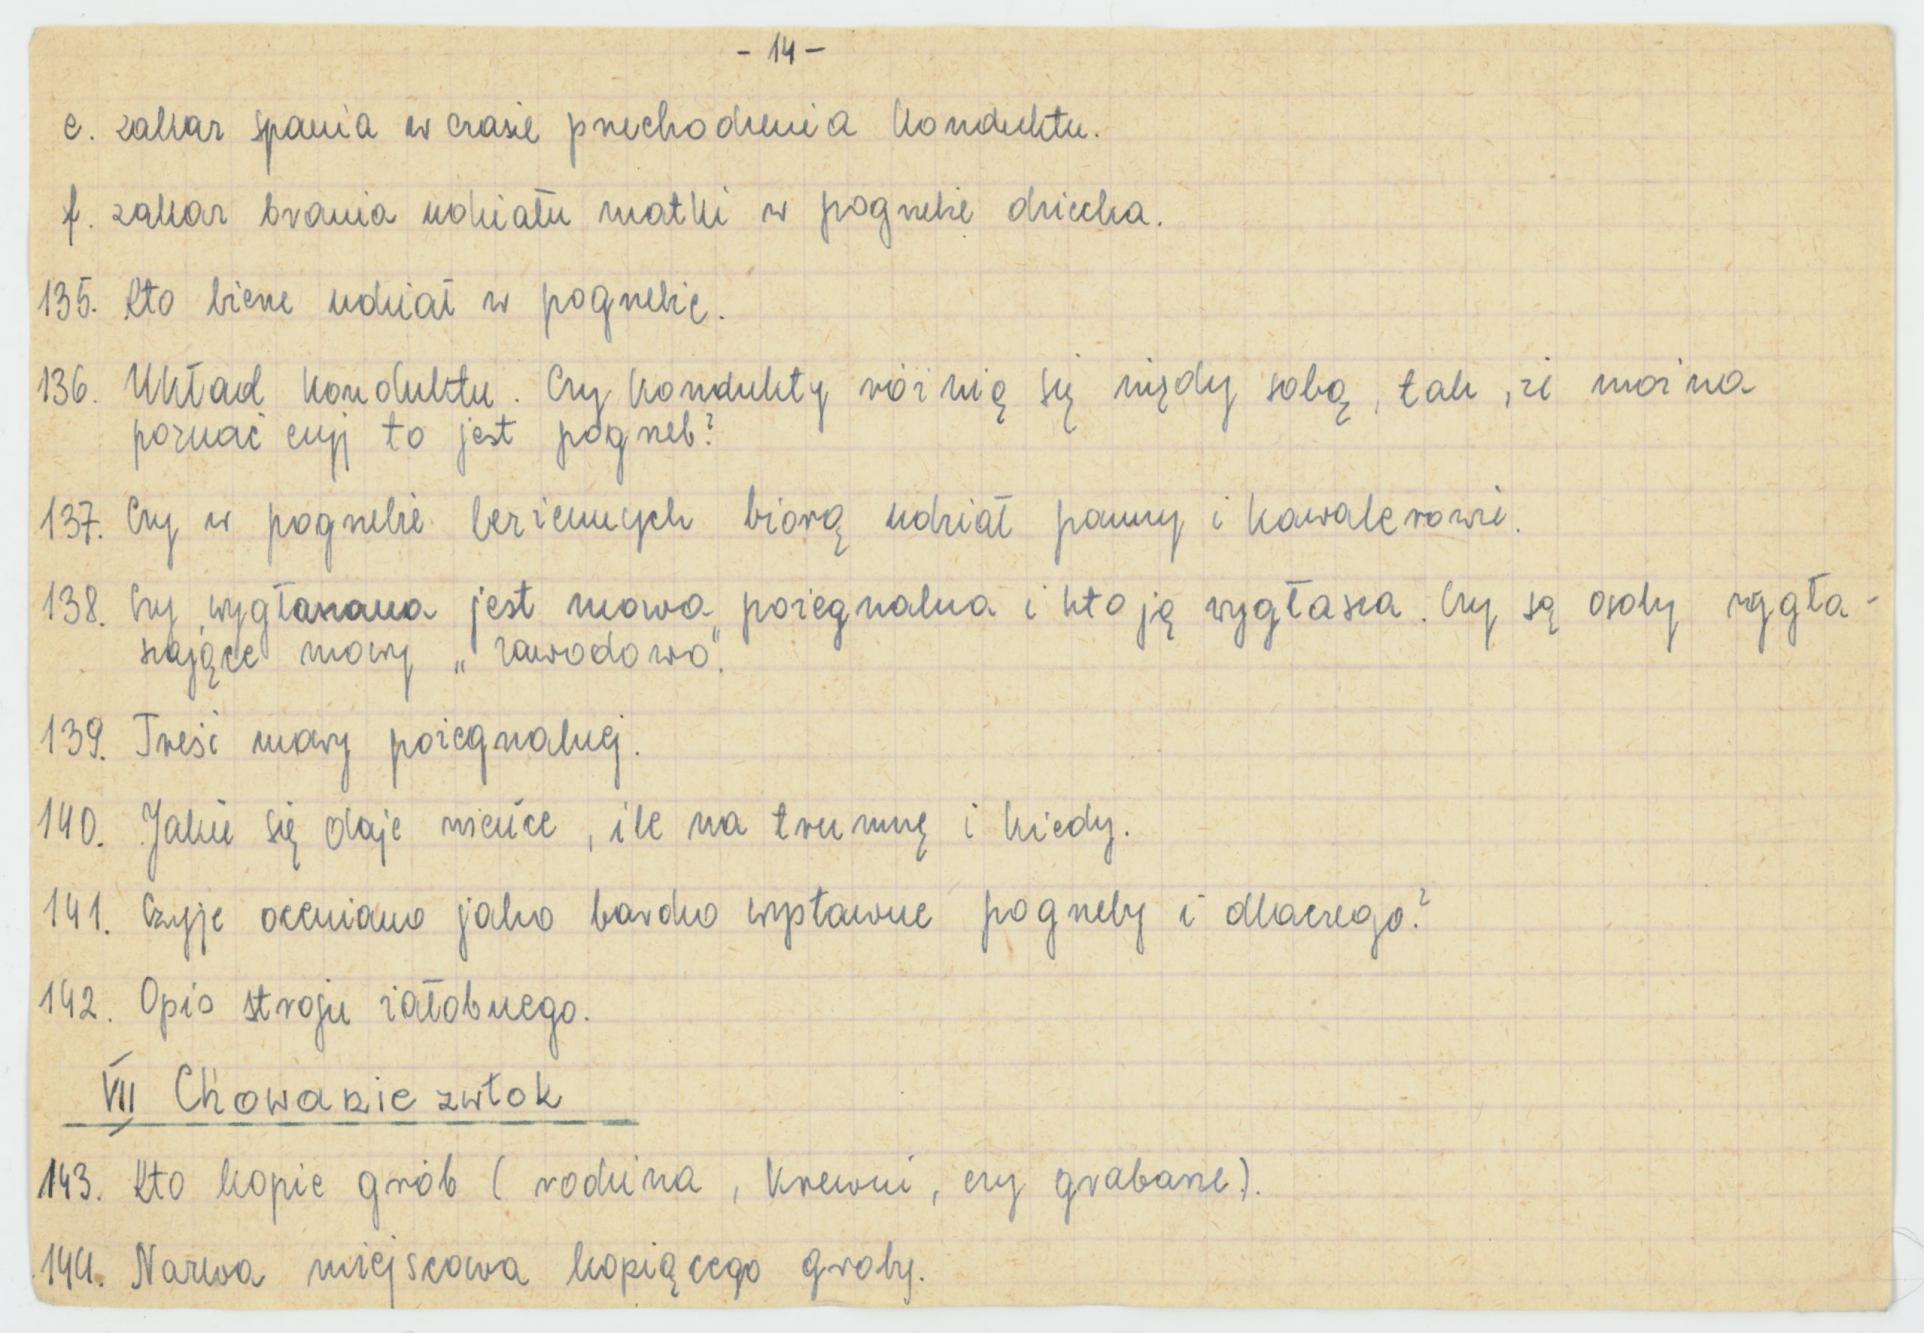 - 14 -
e. zakaz spania w czasie przechodzenia konduktu.
f. zakaz brania udziału matki w pogrzebie dziecka.
135. Kto bierze udział w pogrzebie.
136. Układ konduktu. Czy kondukty różnią się między sobą, tak, że można
poznać czyj to jest pogrzeb?
137. Czy w pogrzebie bezżennych biorą udział panny i kawalerowie.
138. Czy wygłaszana jest mowa pożegnalna i kto ją wygłasza. Czy są osoby wygła-
szające mowy "zawodowo".
139. Treść mowy pożegnalnej.
140. Jakie się daje wieńce, ile na trumnę i kiedy.
141. Czyje oceniano jako bardzo wystawne pogrzeby i dlaczego?
142. Opis stroju żałobnego.
VII Chowanie zwłok
143. Kto kopie grób (rodzina, krewni, czy grabarze).
144. Nazwa miejscowa kopiącego groby.